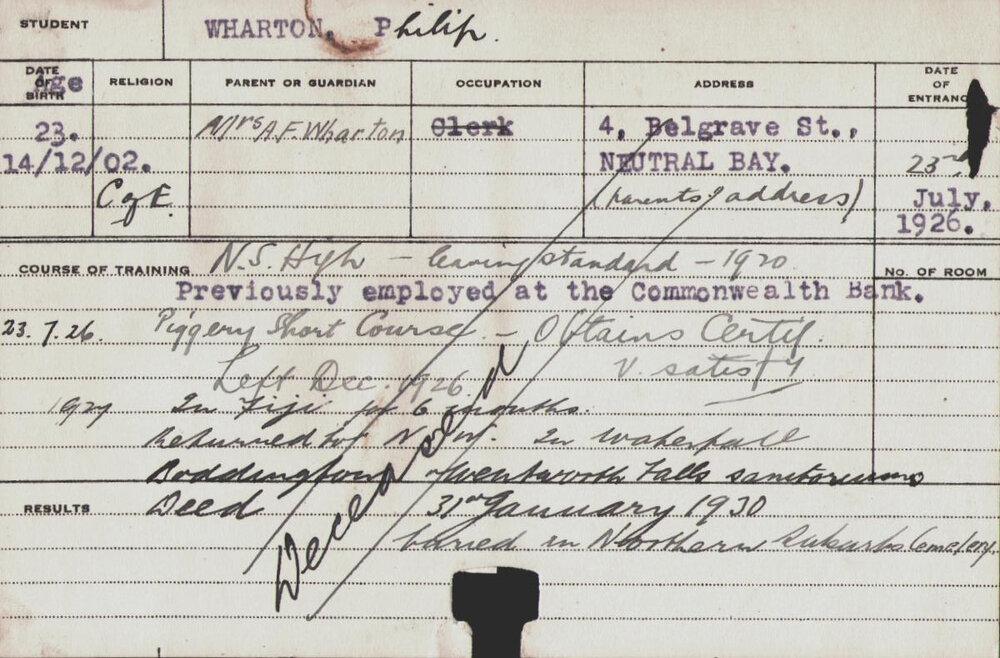 STUDENT WHARTON, Philip.
DATE OF BIRTH Age RELIGION PARENT OR GUARDIAN OCCUPATION ADDRESS DATE OF ENTRANC
23. Mrs A. F. Wharton Clerk 4, Belgrave St.,
14/12/02. NEUTRAL BAY. 23rd
C of E. (parents' address) July,
1926.
COURSE OF TRAINING N.S. High - leaving standard - 1920 No. OF ROOM
Previously employed at the Commonwealth Bank.
23.7.26. Piggery Short Course - Obtains Certif.
Left Dec. 1926 V. satisfy
1927 In Fiji for 6 months.
Returned to N.S.W. In Waterfall
Boddington Wentworth Falls sanitoriums
RESULTS Deed 31st January 1930
buried in Northern Suburbs Cemetery
Deceased